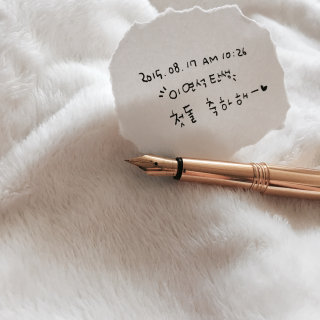 2015.08.17 AM 10:26
이연석 탄생
첫돌 축하해~♥